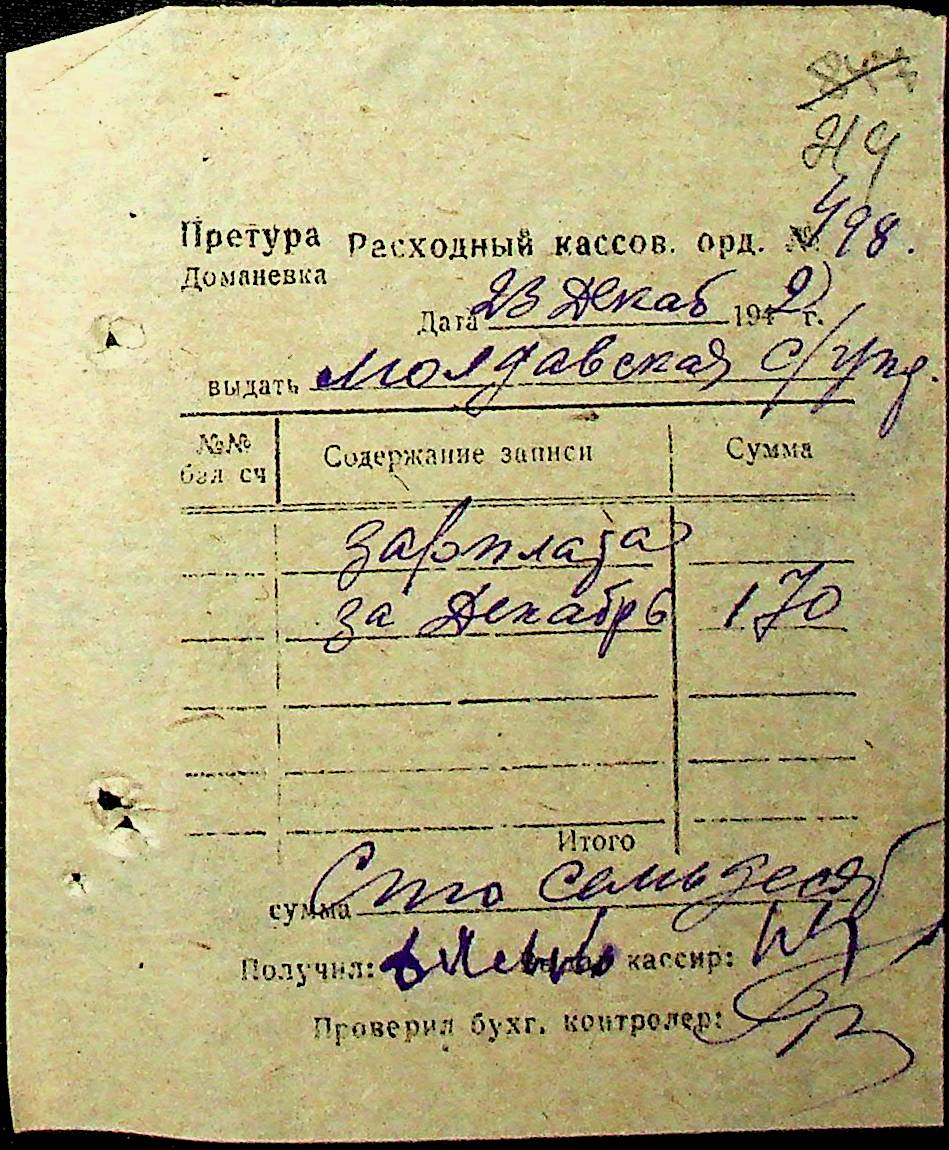 214
Претура Расходный кассов. орд. № 498.
Доманевка
Дата 23 Декаб 1942 г.
выдать Молдавская с/упр.
№№ бал сч Содержание записи Сумма
зарплата
за Декабрь 170
Итого
сумма Сто семьдесят
Получил: кассир:
Проверил бухг. контролер: